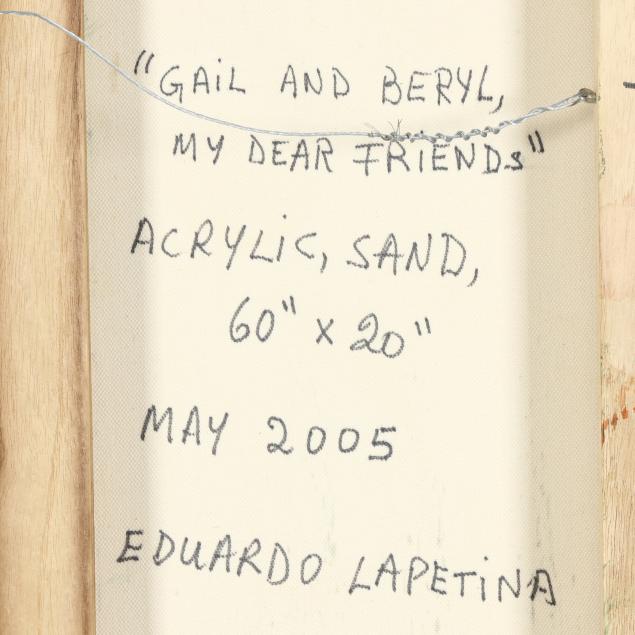 "GAiL AND BERYL,
MY DEAR FRiENDs"
ACRYLiC, SAND,
60" x 20"
MAY 2005
EDUARDO LAPETiNA